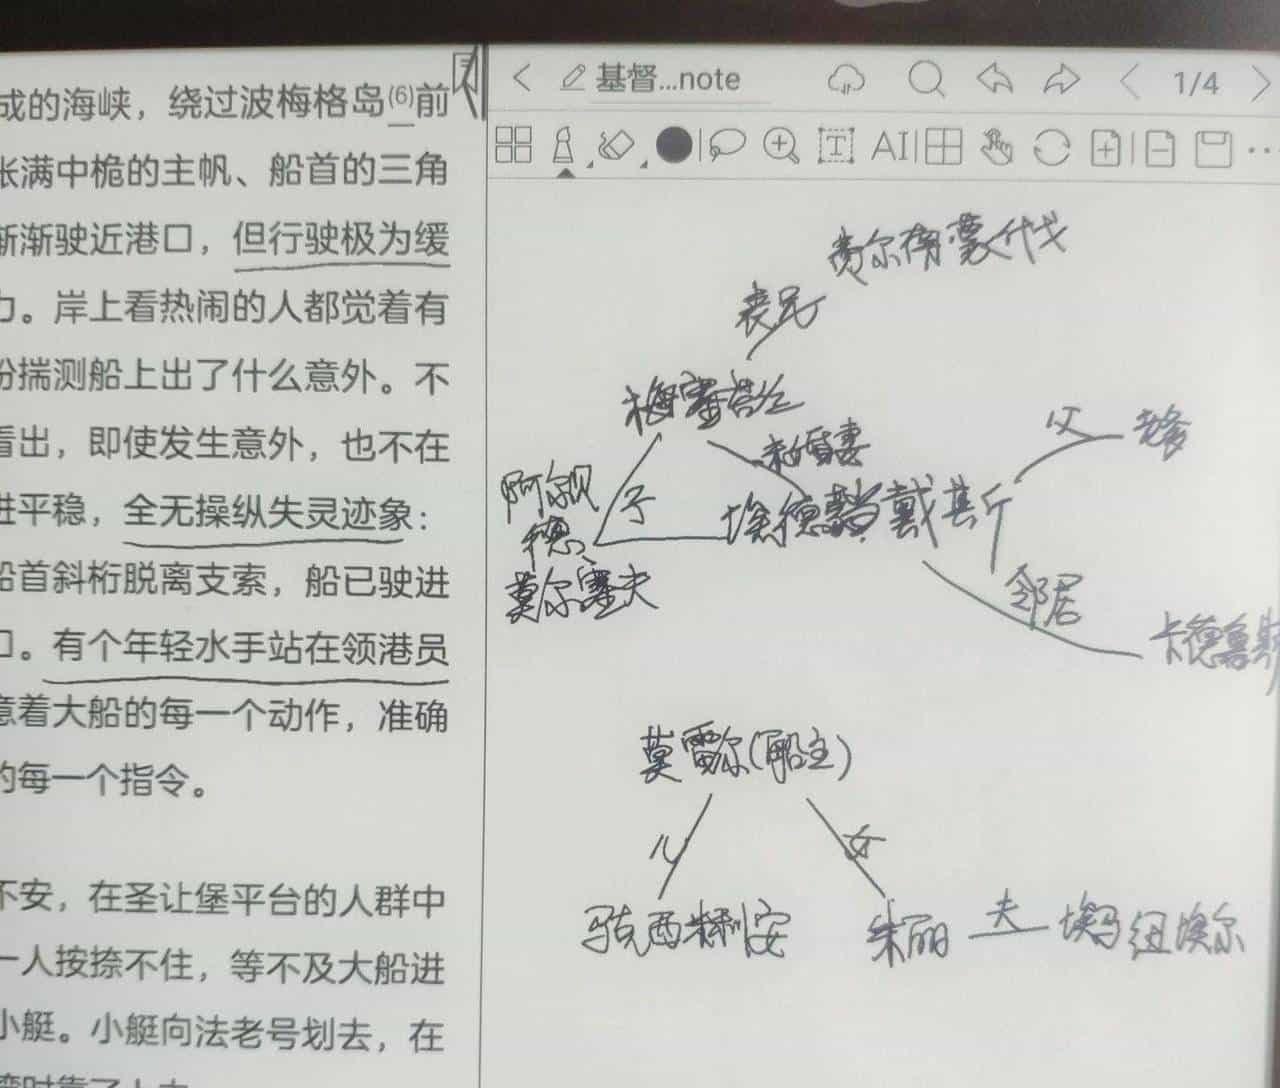 成的海峡，绕过波梅格岛(6)前
张满中桅的主帆、船首的三角
渐渐驶近港口，但行驶极为缓
力。岸上看热闹的人都觉着有
纷揣测船上出了什么意外。不
看出，即使发生意外，也不在
进平稳，全无操纵失灵迹象：
船首斜桁脱离支索，船已驶进
口。有个年轻水手站在领港员
意着大船的每一个动作，准确
的每一个指令。
不安，在圣让堡平台的人群中
一人按捺不住，等不及大船进
小艇。小艇向法老号划去，在
基督...note
1/4
T
AI
费尔南蒙代戈
表兄
梅塞苔丝
未婚妻
父
老爹
阿尔贝
德
莫尔塞夫
子
埃德蒙·戴基斯
邻居
卡德鲁斯
莫雷尔(船主)
儿
女
马克西米利安
朱丽
夫
埃马纽埃尔